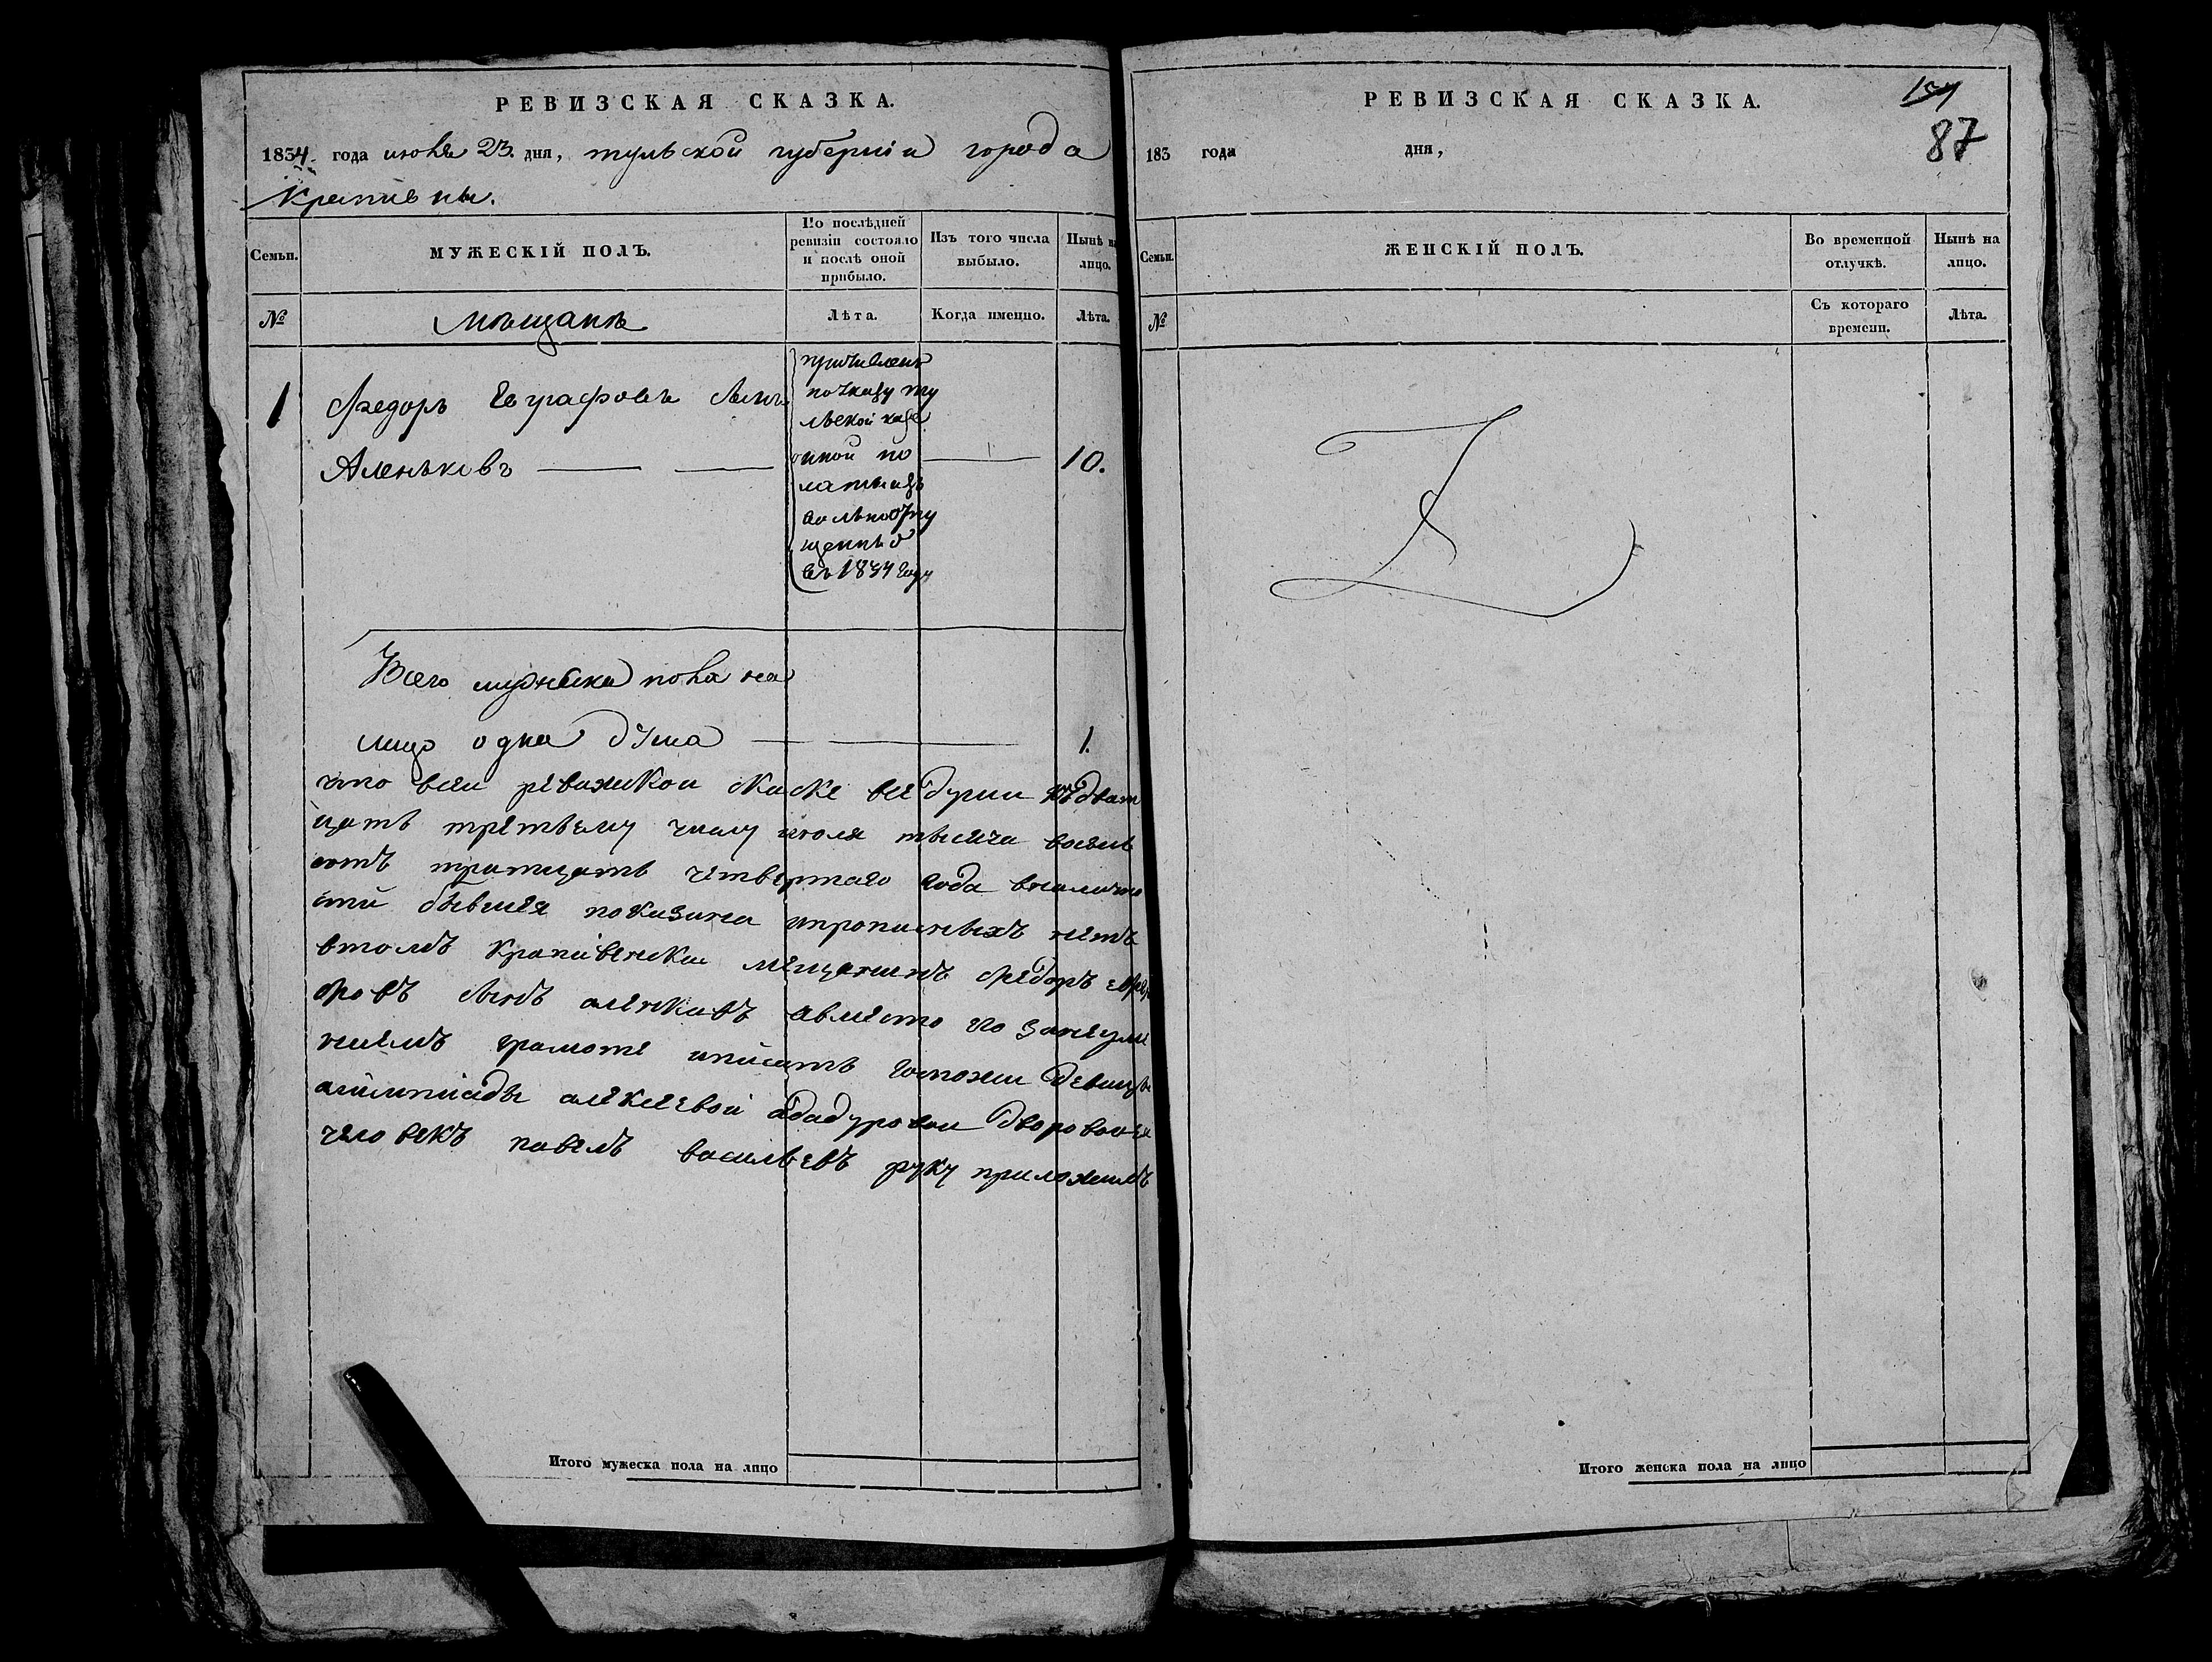 РЕВИЗСКАЯ СКАЗКА.
1834 года июля 23. дня, тульской губернiи города
Крапивны.
Семьи.
МУЖЕСКIЙ ПОЛЪ.
По послѣдней ревизiи состояло и послѣ оной прибыло.
Изъ того числа выбыло.
Нынѣ на лицо.
№
Мѣщане
Лѣта.
Когда именно.
Лѣта.
1
Федоръ Евграфовъ сынъ
Аленьковъ
причисленъ
по указу ту
льской казе
нной по
латы изъ
вольноотпу
щенныхъ
въ 1834 году
10.
Всего мужеска пола на
лицо одна душа 1.
что всеи ревижкои скаске все души къ дват
цать третьему числу июля тысяча восем
сотъ тритцать четвертаго года вналично
сти бывшея показана ипрописныхъ нетъ
втомъ крапивенскои мещанинъ Федоръ евгра
фовъ сынъ аленкавъ авместо его занеуме
ниемъ грамоте иписать госпожи девицы
алимпiады алексеевой абадуровои дворовои
человекъ павелъ васильевъ руку приложилъ
Итого мужеска пола на лицо
РЕВИЗСКАЯ СКАЗКА.
87
183 года дня,
Семьи.
ЖЕНСКIЙ ПОЛЪ.
Во временной отлучкѣ.
Нынѣ на лицо.
№
Съ котораго времени.
Лѣта.
Итого женска пола на лицо